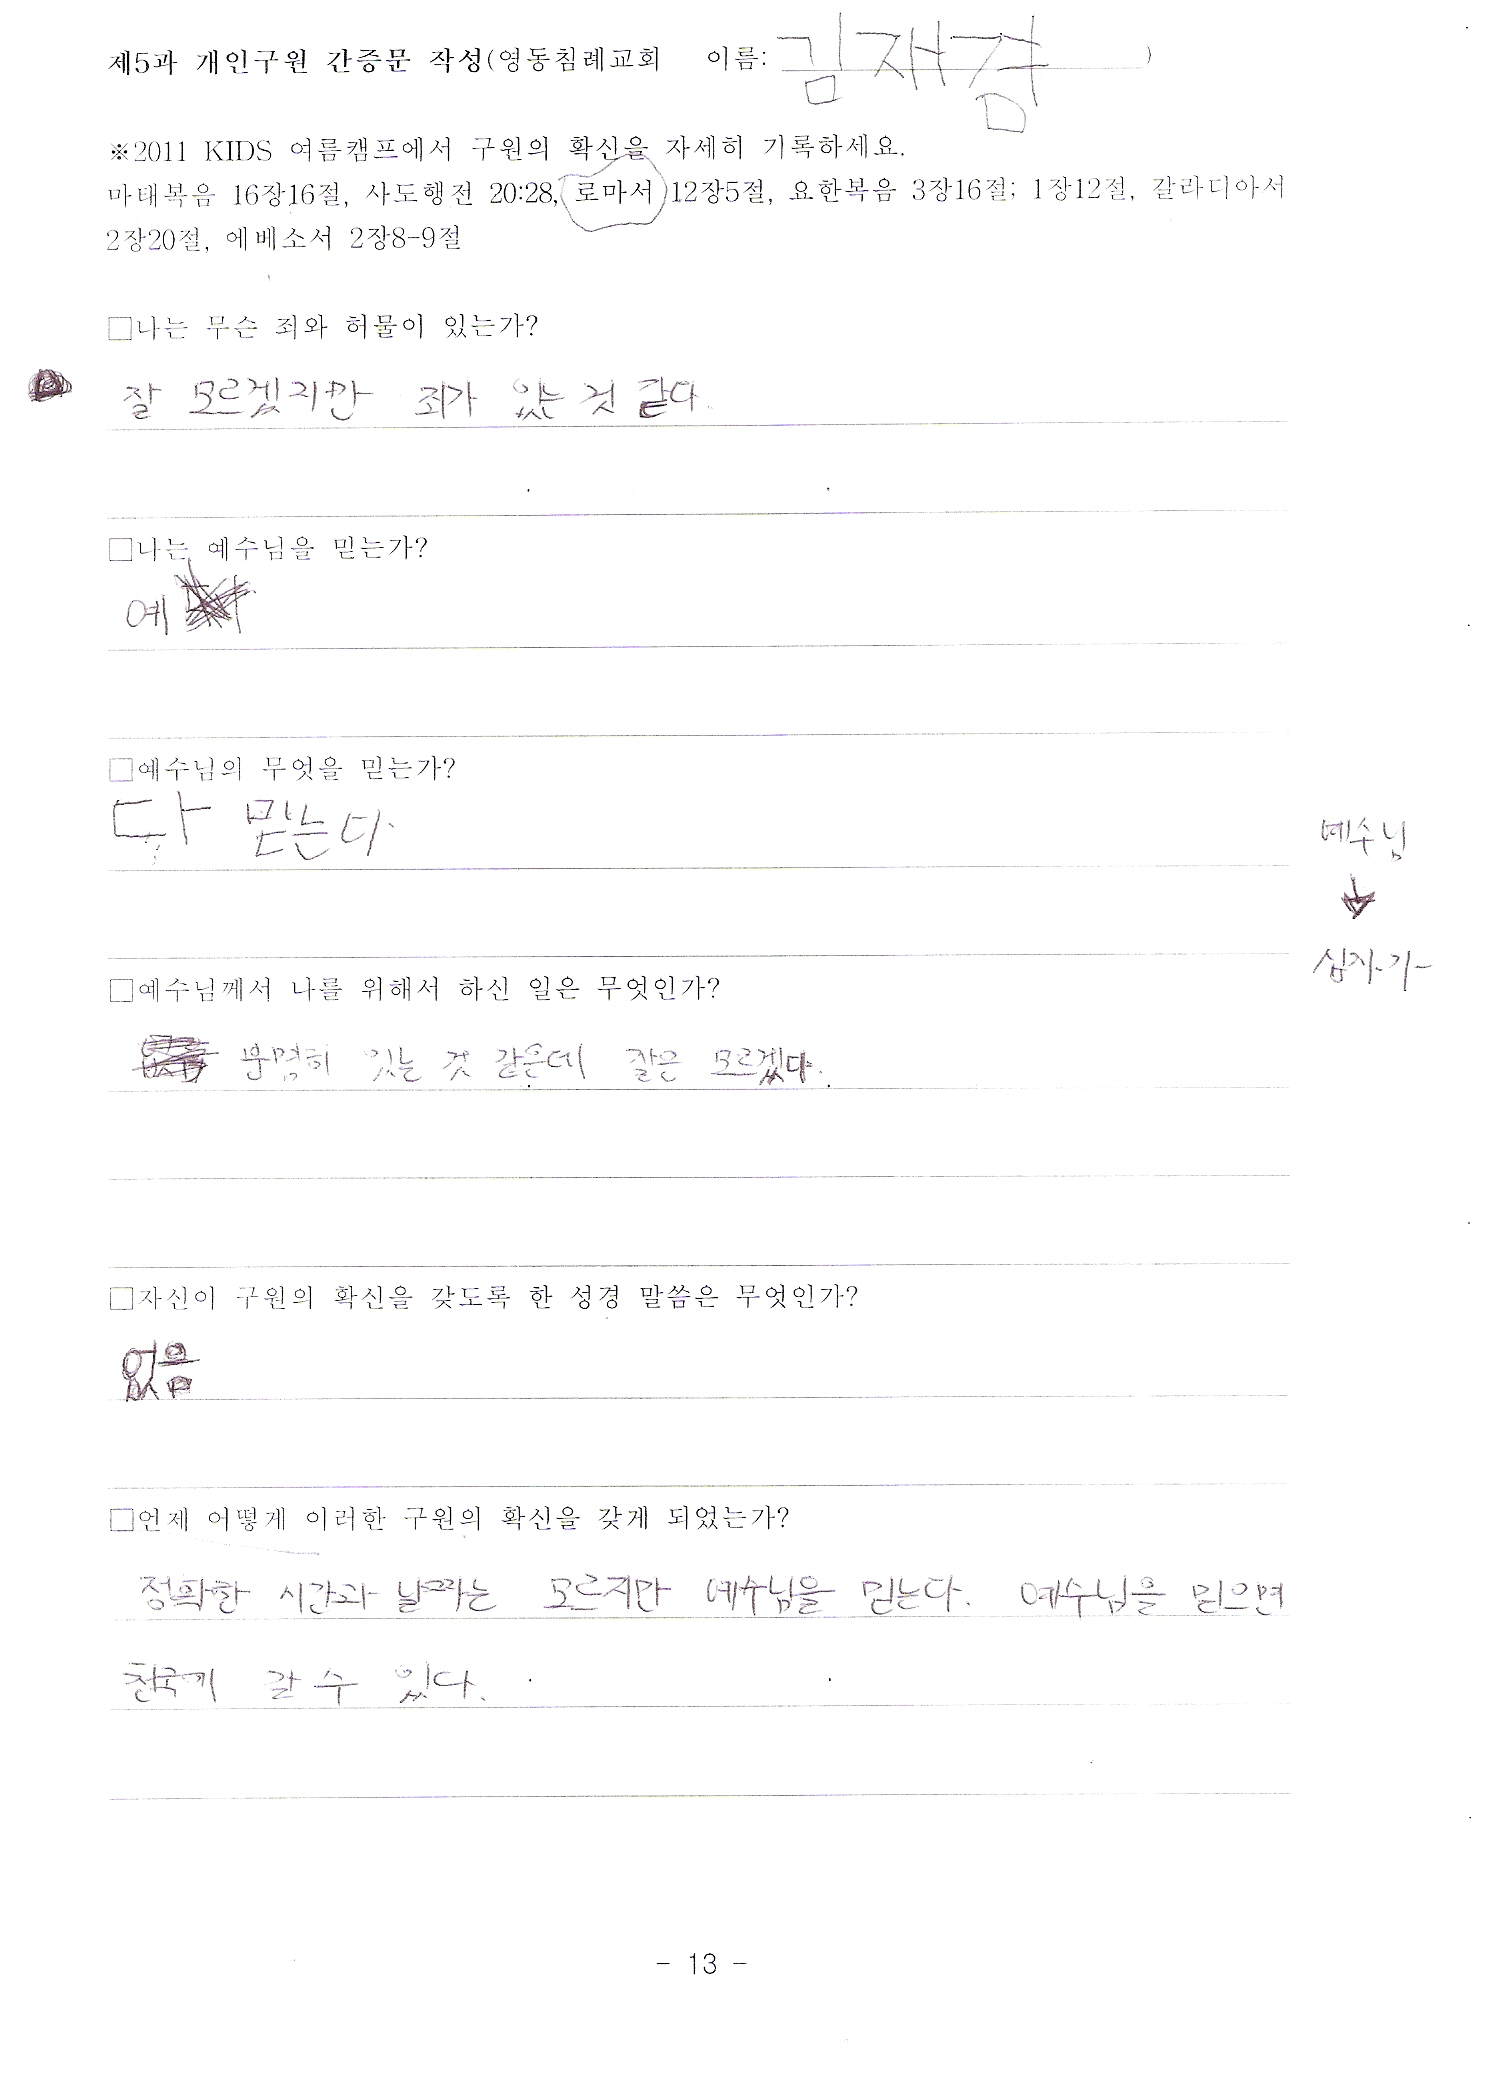 제5과 개인구원 간증문 작성(영동침례교회 이름: 김재겸 )
※2011 KIDS 여름캠프에서 구원의 확신을 자세히 기록하세요.
마태복음 16장16절, 사도행전 20:28, 로마서 12장5절, 요한복음 3장16절; 1장12절, 갈라디아서
2장20절, 에베소서 2장8-9절
□나는 무슨 죄와 허물이 있는가?
잘 모르겠지만 죄가 있는 것 같다.
□나는 예수님을 믿는가?
예
□예수님의 무엇을 믿는가?
다 믿는다.
예수님
↓
십자가
□예수님께서 나를 위해서 하신 일은 무엇인가?
분명히 있는 것 같은데 잘은 모르겠다.
□자신이 구원의 확신을 갖도록 한 성경 말씀은 무엇인가?
없음
□언제 어떻게 이러한 구원의 확신을 갖게 되었는가?
정확한 시간과 날짜는 모르지만 예수님을 믿는다. 예수님을 믿으면
천국에 갈 수 있다.
- 13 -